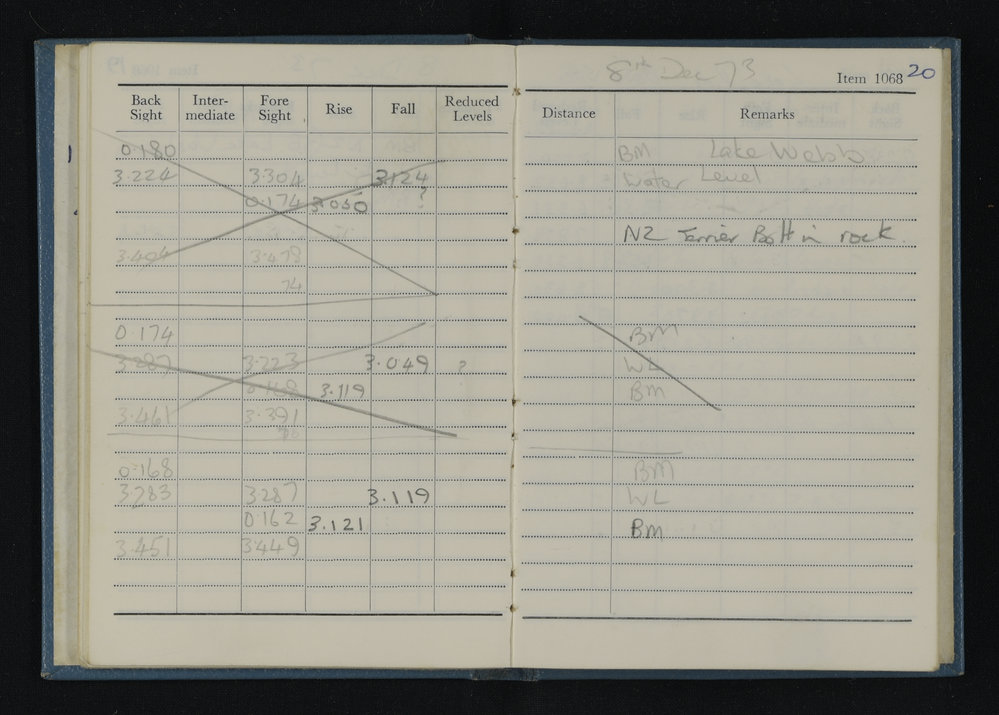 8th Dec 73
Item 1068 20
Back Sight Inter-mediate Fore Sight Rise Fall Reduced Levels Distance Remarks
0.180 BM Lake Webb
3.224 3.304 3.124 Water Level
0.174 3.050 ?
NZ Terrier Bolt in rock.
3.404 3.478
74
0.174 BM
3.287 3.223 3.049 ? WL
0.168 3.119 BM
3.461 3.391
0.168 BM
3.283 3.287 3.119 WL
0.162 3.121 BM
3.451 3.449